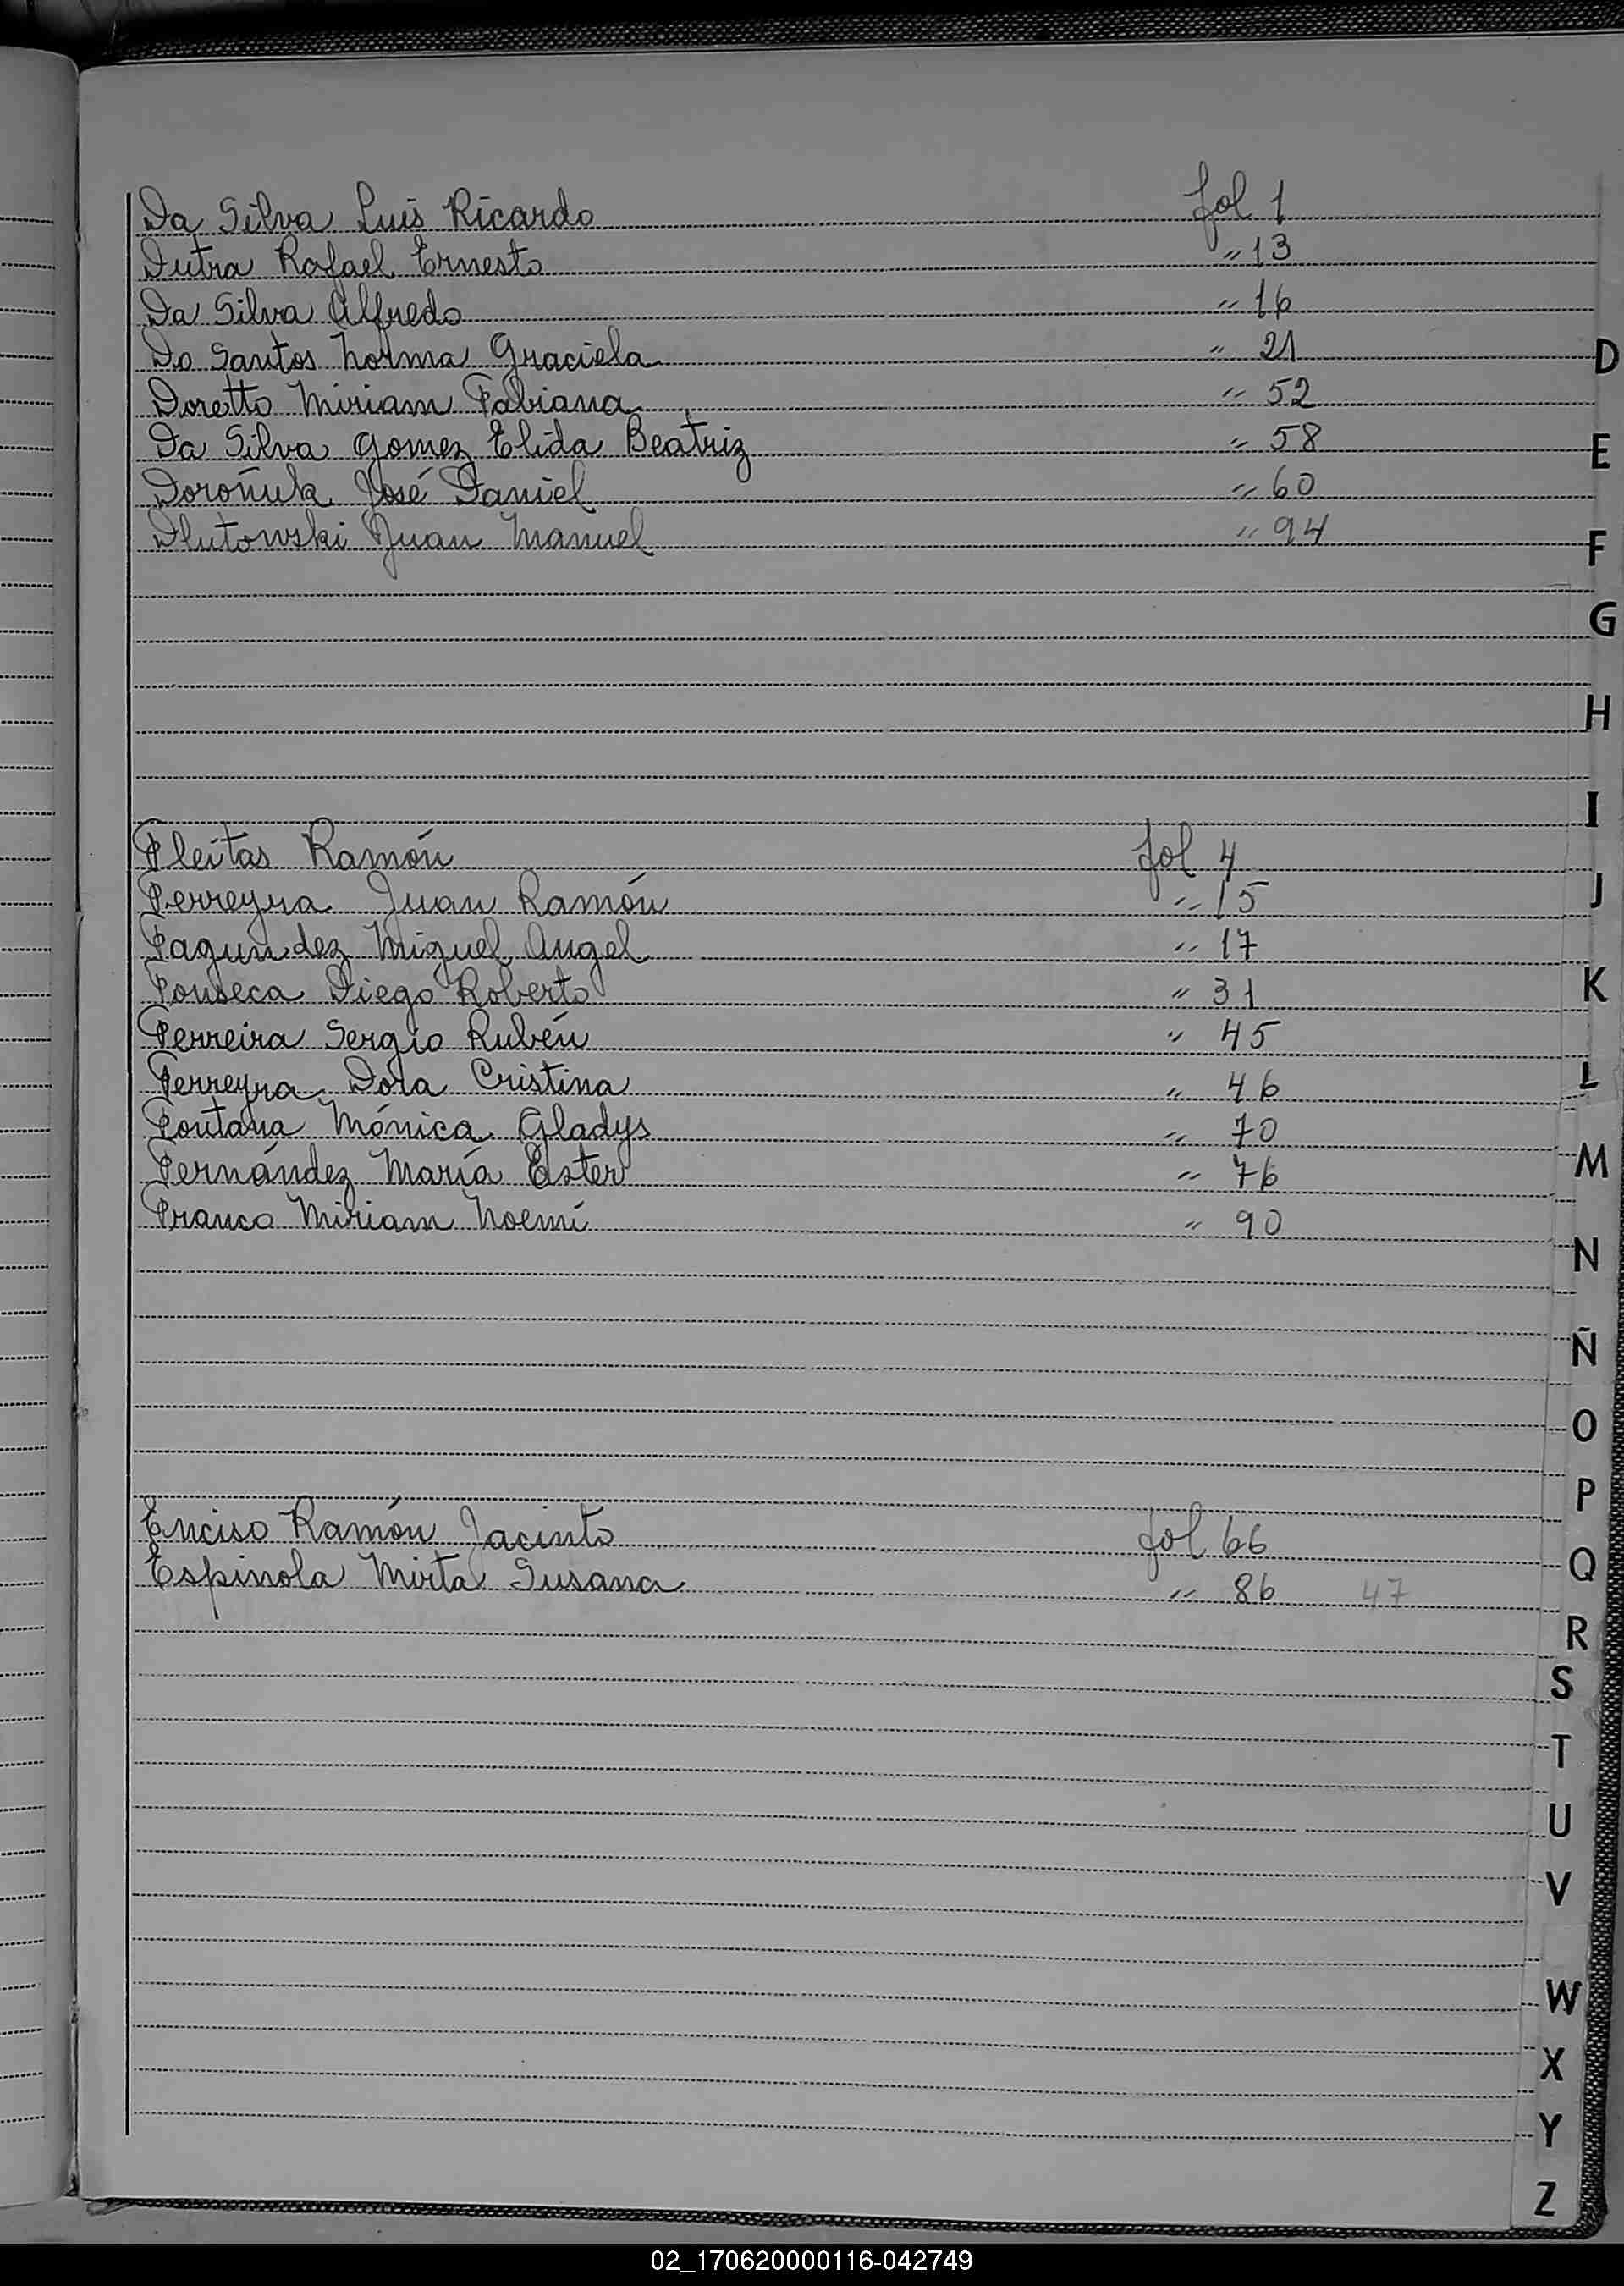 Da Silva Luis Ricardo fol 1
Dutra Rafael Ernesto " 13
Da Silva Alfredo " 16
Do Santos Norma Graciela " 21
Doretto Miriam Fabiana " 52
Da Silva Gomez Elida Beatriz " 58
Doroñuk José Daniel " 60
Dlutowski Juan Manuel " 94
Fleitas Ramón fol 4
Ferreyra Juan Ramón " 15
Fagundez Miguel Angel " 17
Fonseca Diego Roberto " 31
Ferreira Sergio Rubén " 45
Ferreyra Dora Cristina " 46
Fontana Mónica Gladys " 70
Fernández María Ester " 76
Franco Miriam Noemí " 90
Enciso Ramón Jacinto fol 66
Espinola Mirta Susana " 86 47
D
E
F
G
H
I
J
K
L
M
N
Ñ
O
P
Q
R
S
T
U
V
W
X
Y
Z
02_170620000116-042749